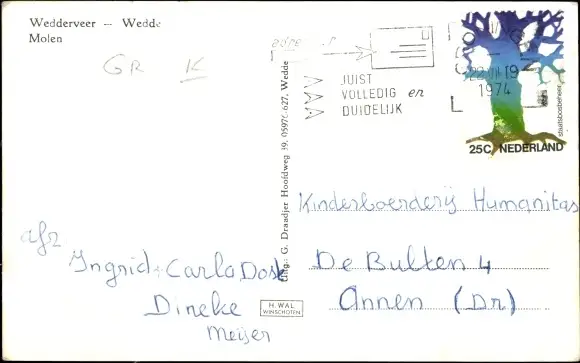 Wedderveer — Wedde
Molen
GR K
adresseer
JUIST
VOLLEDIG en
DUIDELIJK
GRONINGEN
22 VII 19
1974
staatsbosbeheer
25C NEDERLAND
Uitg.: G. Draadjer Hoofdweg 39, 05976-627, Wedde
Kinderboerderij Humanitas
De Bulten 4
Annen (Dr)
afz
Ingrid + Carla Dost
Dineke
Meijer
H. WAL
WINSCHOTEN